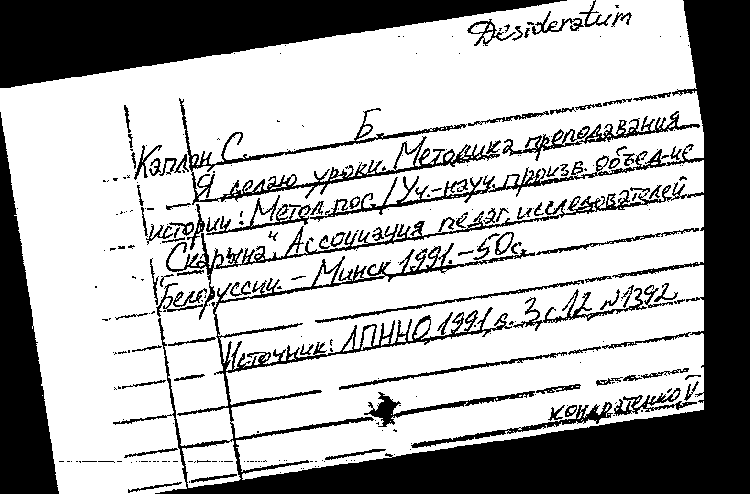 Desideratum
Каплан, С. Б.
Я делаю уроки. Методика преподавания
истории: Метод. пос. / Уч.-науч. произв. объед-ие
"Скарына", Ассоциация педаг. исследователей
Белоруссии. - Минск, 1991. - 50 с.
Источник: ЛПННО, 1991, в. 3, с. 12, №1392
Кондратенко V